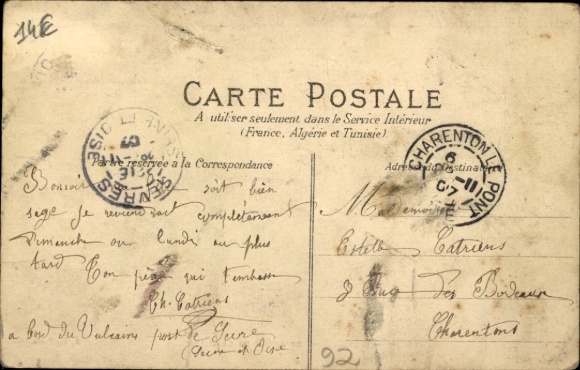 14E
CARTE POSTALE
A utiliser seulement dans le Service Intérieur
(France, Algérie et Tunisie)
Partie réservée à la Correspondance
Adresse du Destinataire
SEVRES
SEINE ET OISE
07
CHARENTON LE PONT
8
11
07
soit bien
sage je complètement
Dimanche ou lundi au plus
tard Ton père qui t'embrasse
Ch. Catriens
a bord du Vulcain port de Sevre
Seine et Oise
Mademoiselle
Estelle Catriens
8 Rue des Bordeaux
Charenton
92